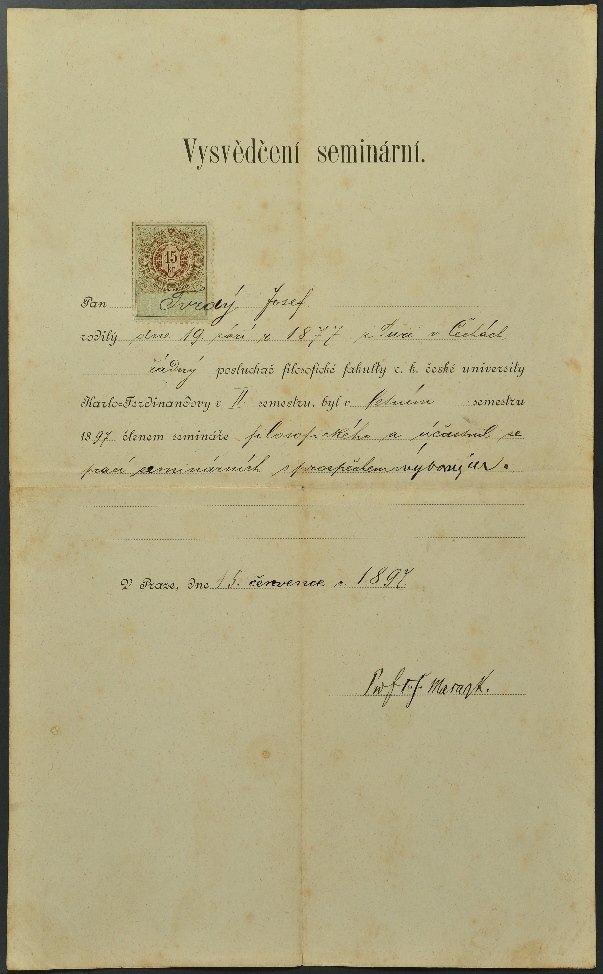 Vysvědčení seminární.
15
Pan Tvrdý Josef
rodilý dne 19 září r 1877 z Tuří v Čechách
řádný posluchač filosofické fakulty c. k. české university
Karlo-Ferdinandovy v II semestru, byl v letním semestru
1897 členem semináře filosofického a účastnil se
prací seminárních s prospěchem výborným.
V Praze, dne 15. července r. 1897
Prof. T. G. Masaryk.